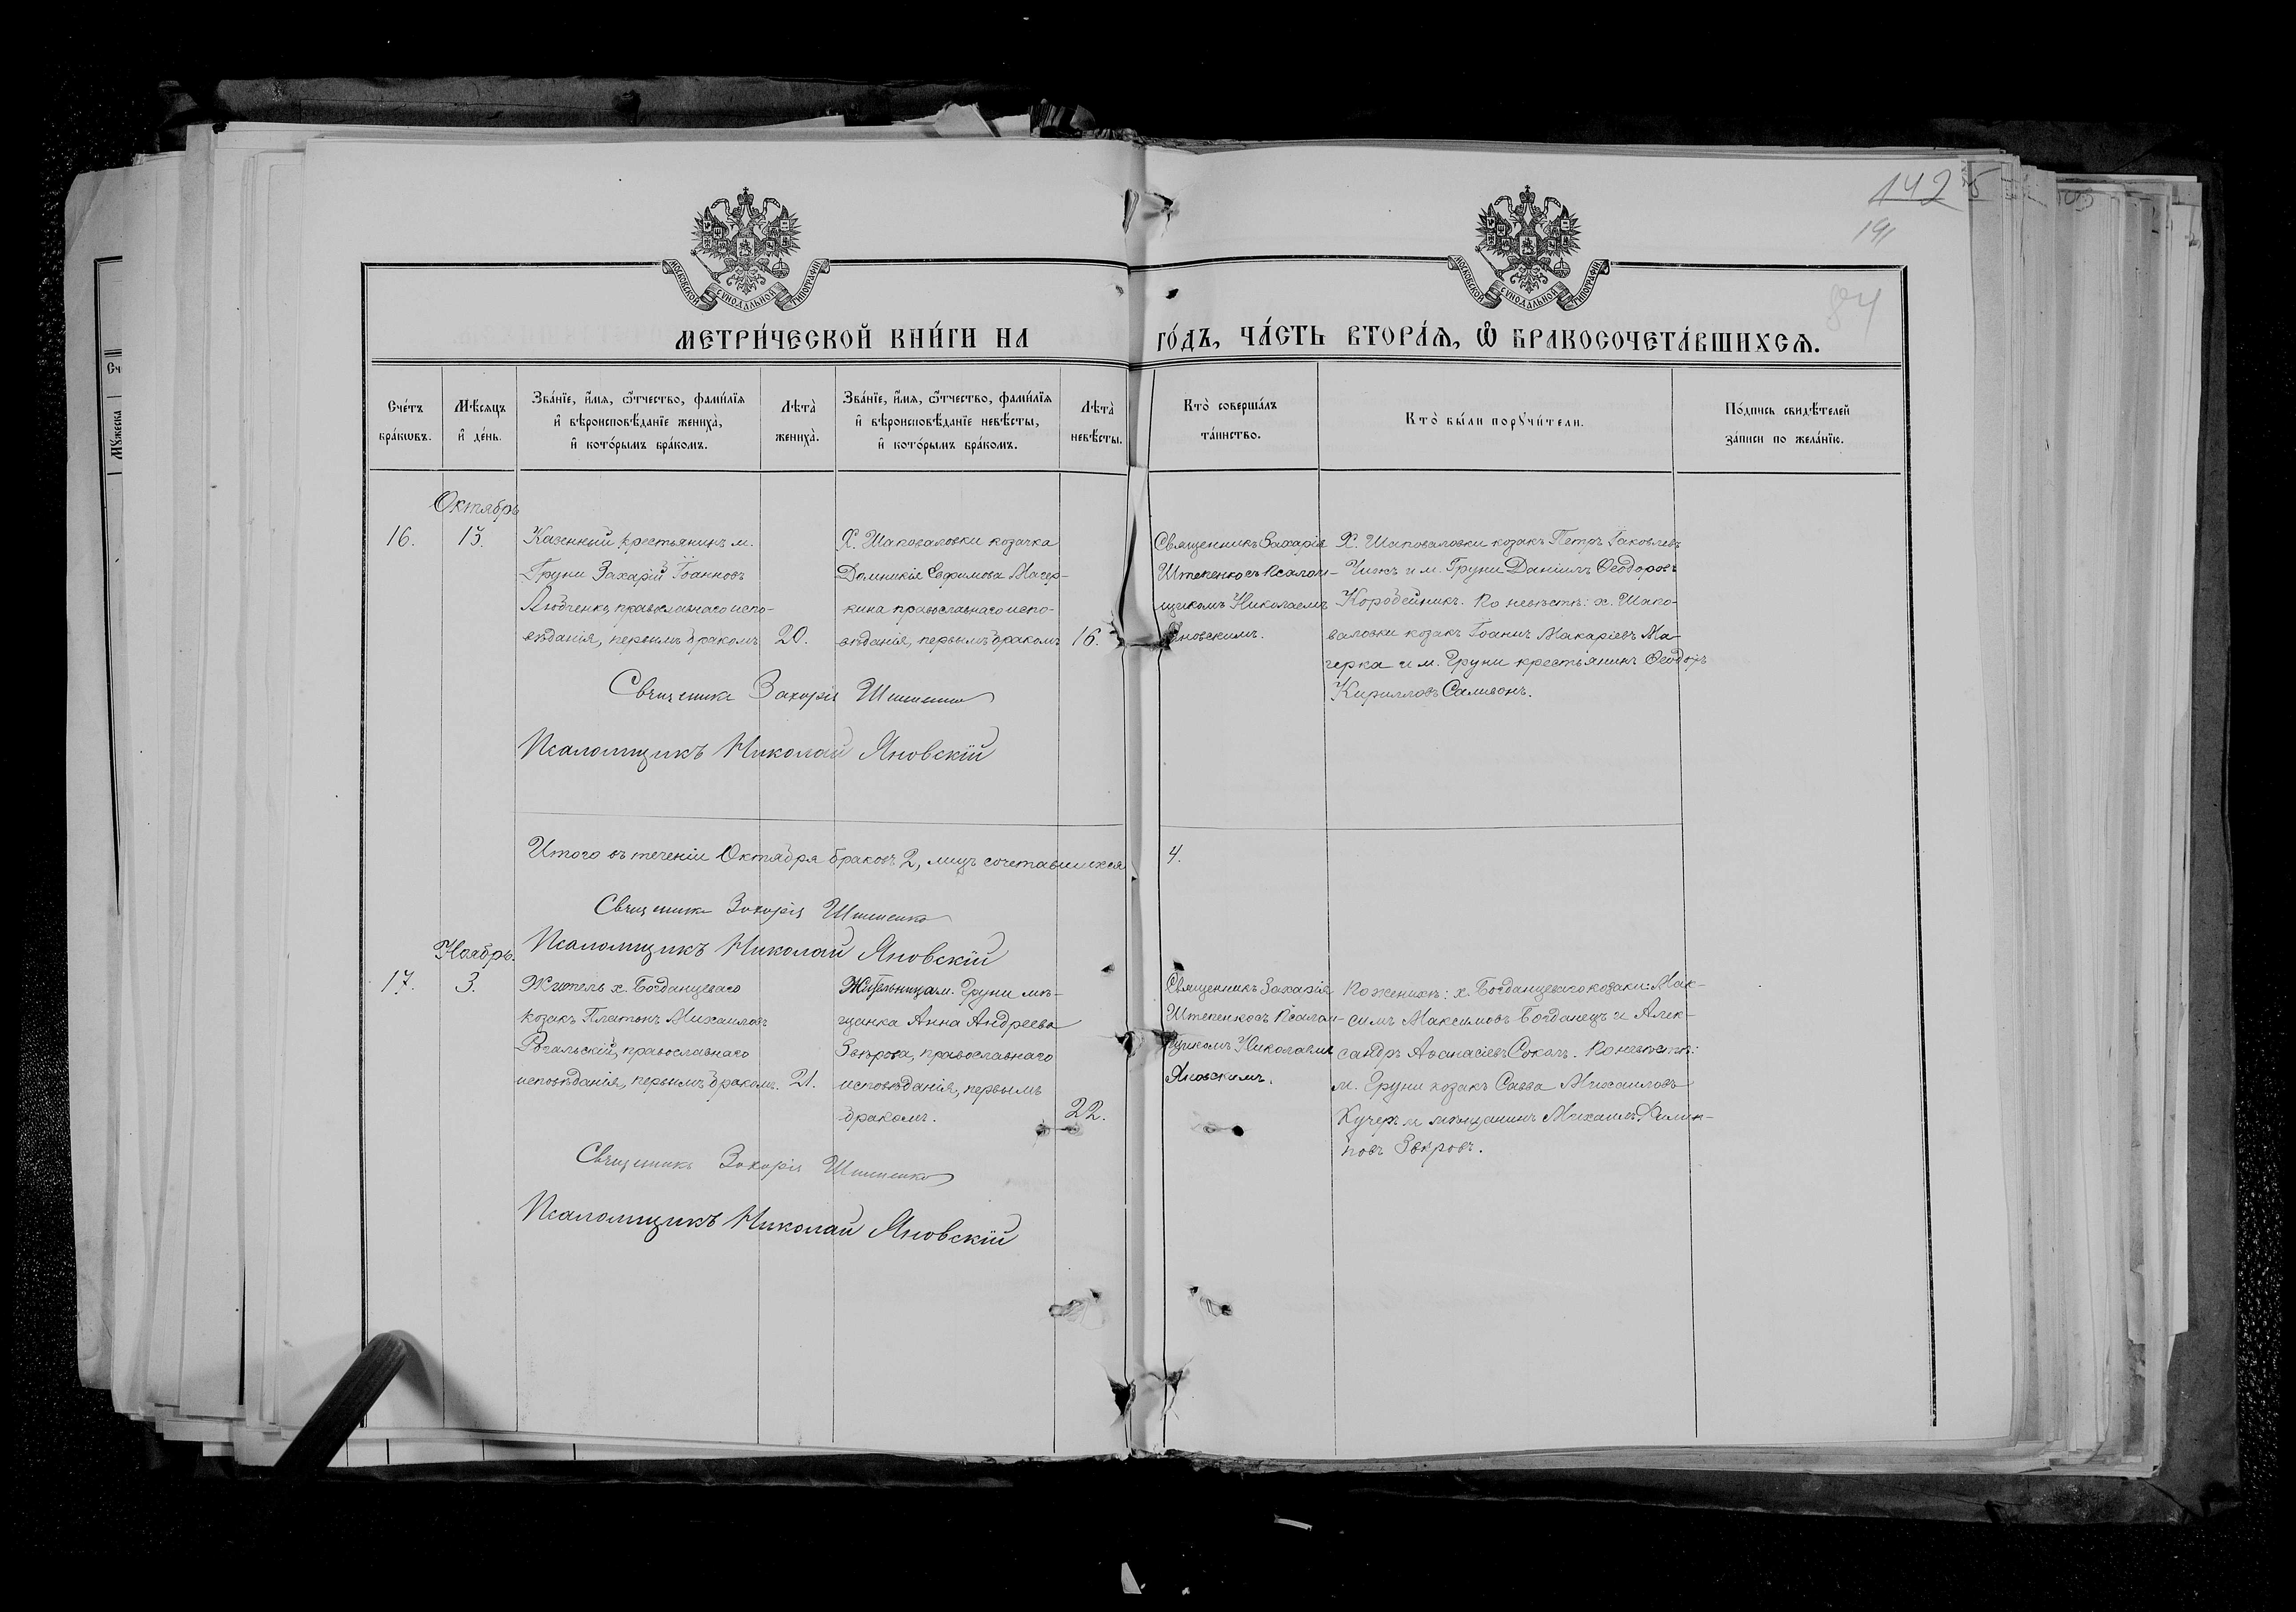 142
191
84
МОСКОВСКОЙ СѴНОДАЛЬНОЙ ТИПОГРАФІИ
МОСКОВСКОЙ СѴНОДАЛЬНОЙ ТИПОГРАФІИ
МЕТРИ́ЧЕСКОЙ КНИ́ГИ НА ГО́ДЪ, ЧА́СТЬ ВТОРА́Ѧ, Ѽ БРАКОСОЧЕТА́ВШИХСѦ.
Сче́тъ
бра́кѡвъ.
Мѣ́сяцъ
и҆ де́нь.
Зва́нїе, и҆́мя, ѻ҆́тчество, фами́лїя
и҆ вѣроисповѣ́данїе жениха̀,
и҆ кото́рымъ бра́комъ.
Лѣта̀
жениха̀.
Зва́нїе, и҆́мя, ѻ҆́тчество, фами́лїя
и҆ вѣроисповѣ́данїе невѣ́сты,
и҆ кото́рымъ бра́комъ.
Лѣта̀
невѣ́сты.
Кто̀ соверша́лъ
та́инство.
Кто̀ бы́ли порꙋчи́тели.
По́дпись свидѣ́телей
за́писи по жела́нїю.
Октябрь
16.
13.
Казенный крестьянинъ м.
Груни Захарій Іоанновъ
Любченко, православнаго испо-
вѣданія, первымъ бракомъ
20.
Х. Шаповаловки козачка
Домникія Евфимова Мачер-
кина православнаго испо-
вѣданія, первымъ бракомъ
16.
Священникъ Захарія
Штепенко съ Псалом-
щикомъ Николаемъ
Яновскимъ.
Х. Шаповаловки козакъ Петръ Іаковлевъ
Чижъ и м. Груни Даніилъ Ѳеодоровъ
Коробейникъ. По невѣстѣ: х. Шапо-
валовки козакъ Іоаннъ Макаріевъ Ма-
черка и м. Груни крестьянинъ Ѳеодоръ
Кирилловъ Саливонъ.
Священникъ Захарія
Псаломщикъ Николай Яновскій
Итого въ теченіи Октября браковъ 2, лицъ сочетавшихся 4.
Священникъ Захарія
Псаломщикъ Николай Яновскій
Ноябрь.
17.
3.
Житель х. Богданцеваго
козакъ Платонъ Михаиловъ
Рогальскій, православнаго
исповѣданія, первымъ бракомъ.
21.
Жительница м. Груни мѣ-
щанка Анна Андреева
Звѣрова, православнаго
исповѣданія, первымъ
бракомъ.
22.
Священникъ Захарія
Штепенко съ Псалом-
щикомъ Николаемъ
Яновскимъ.
По женихѣ: х. Богданцеваго козаки: Мак-
симъ Максимовъ Богданецъ и Алек-
сандръ Аѳанасіевъ Соколъ. По невѣстѣ:
м. Груни козакъ Савва Михаиловъ
Кучеръ и мѣщанинъ Михаилъ Филип-
повъ Звѣровъ.
Священникъ Захарія
Псаломщикъ Николай Яновскій